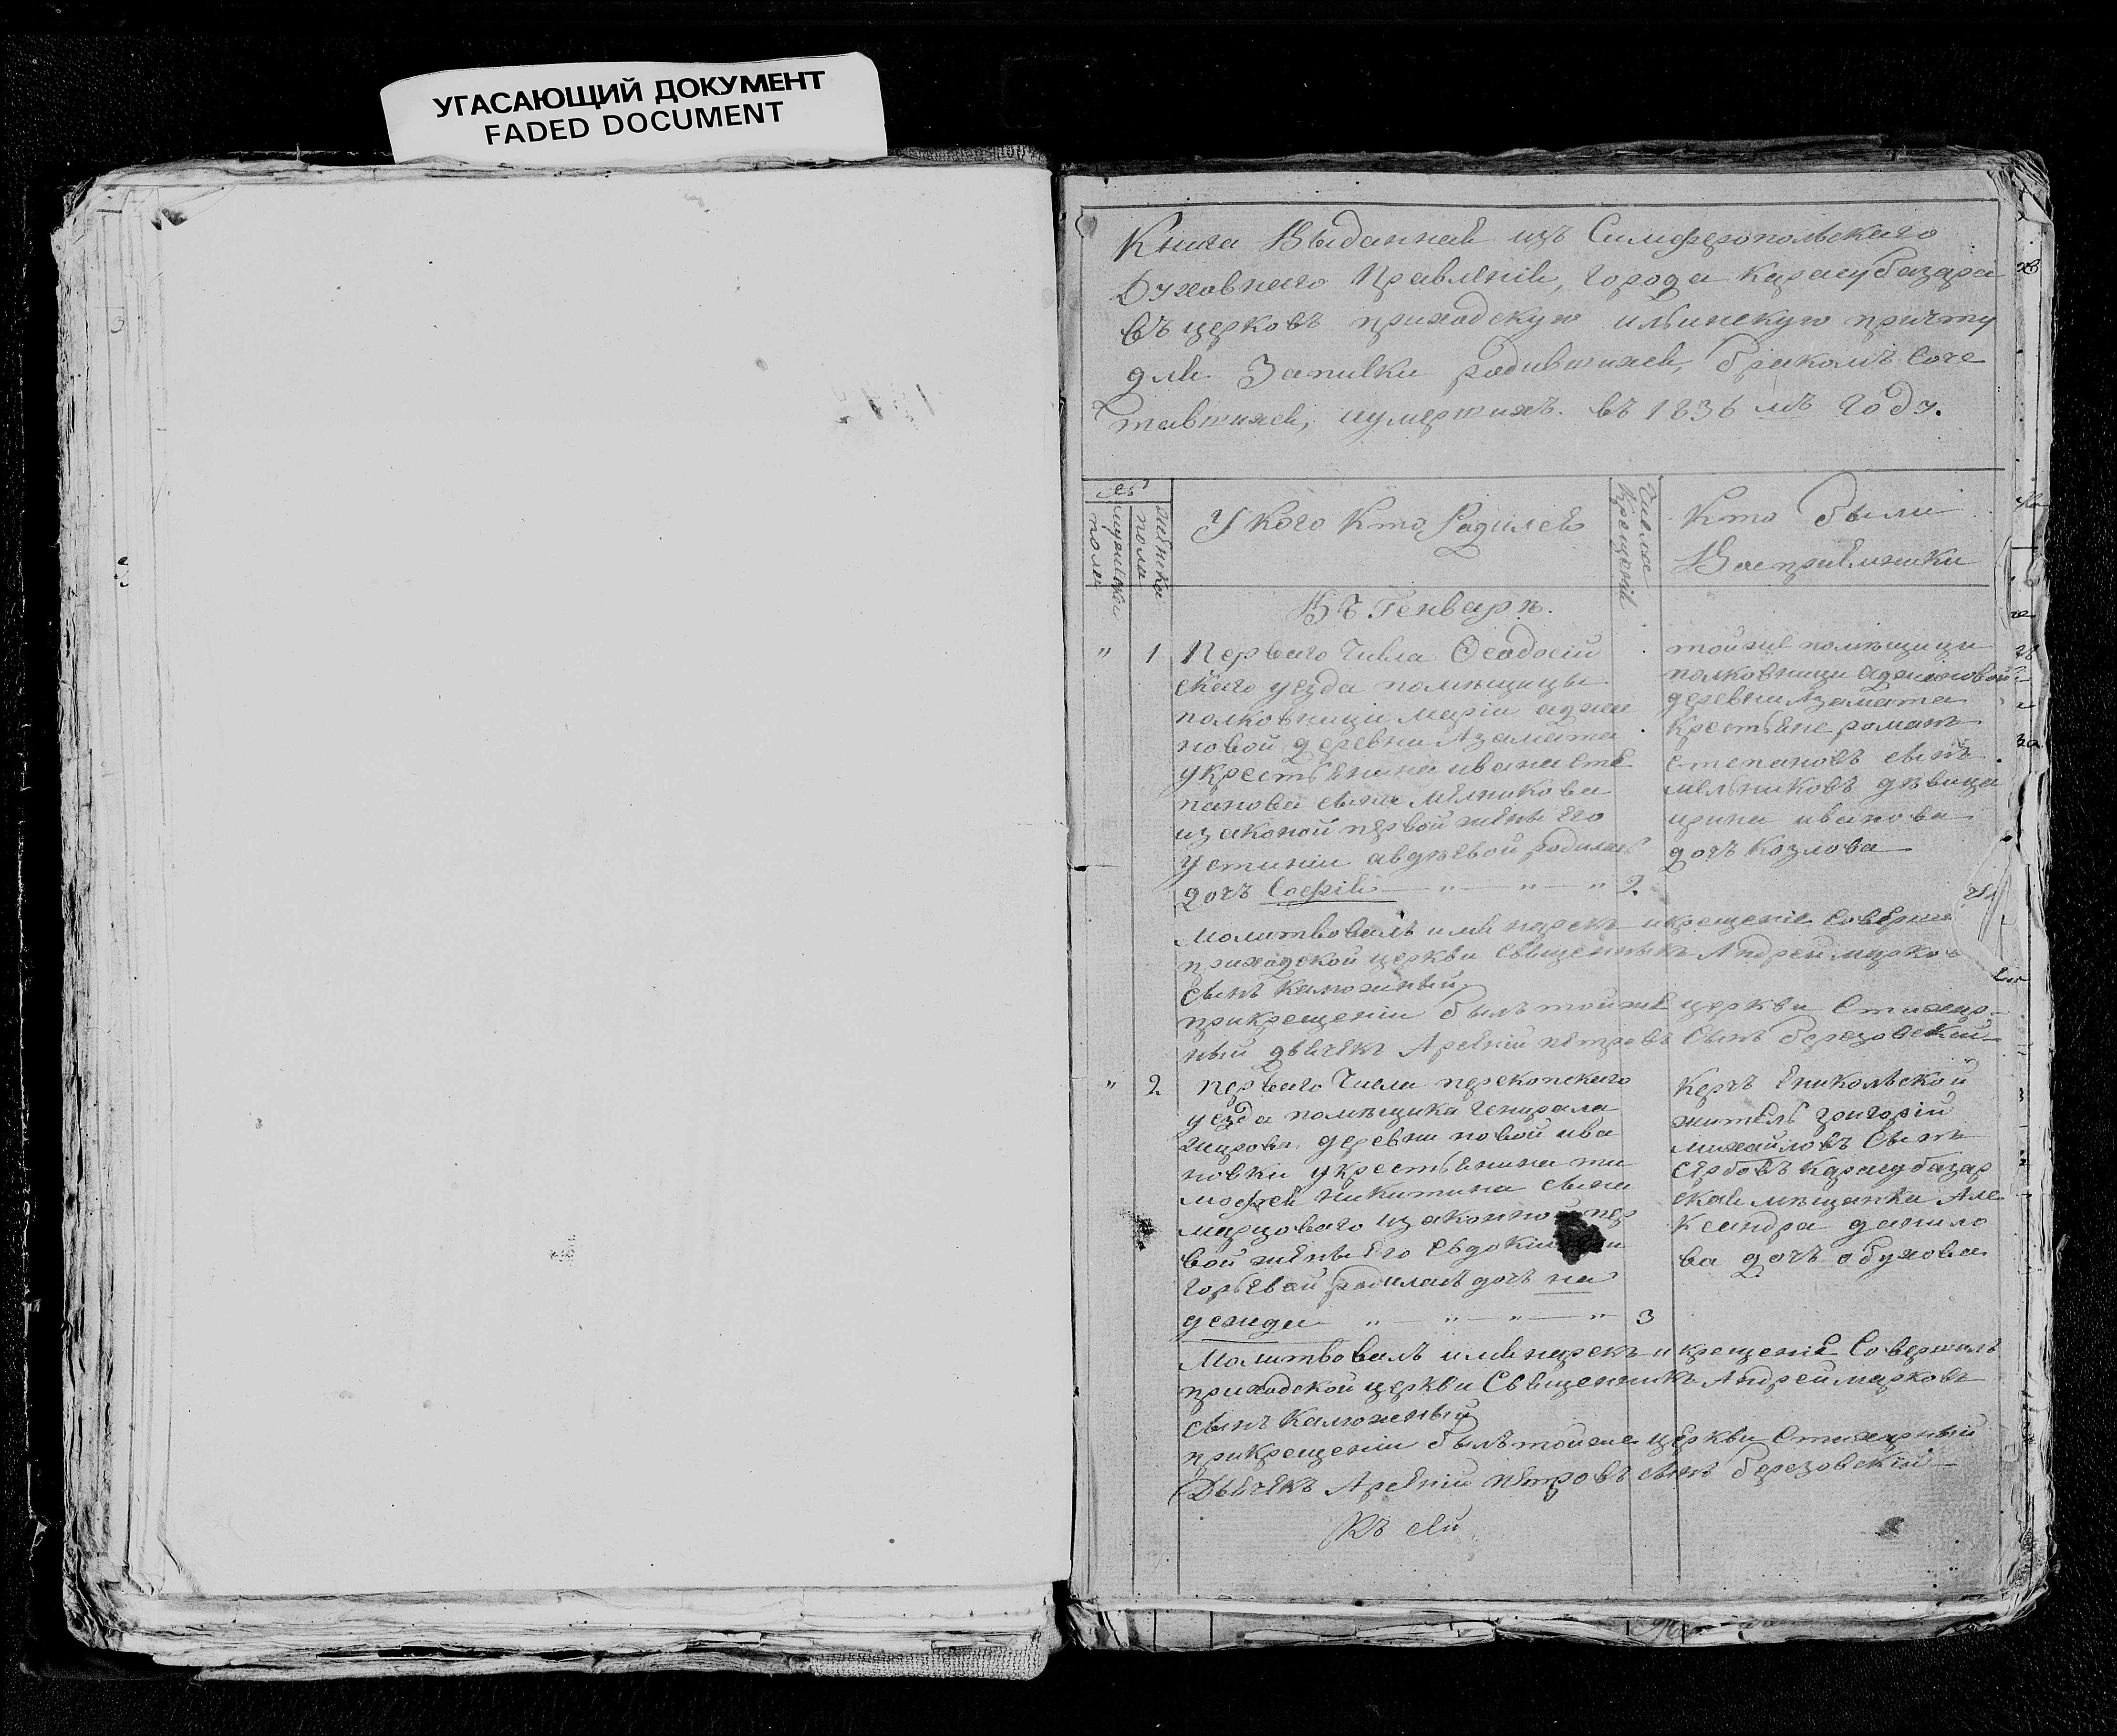 УГАСАЮЩИЙ ДОКУМЕНТ
FADED DOCUMENT
Книга Выданная изъ Симферопольскаго
Духовнаго Правленія, города Карасубазара
въ церковь приходскую ильинскую причту
для Записки родившихся, бракомъ соче
тавшихся, иумершихъ. въ 1836 мъ году.
№
мужеска
пола
женска
пола
У кого Кто Родился
Числа
крещенія
Кто были
Восприемники
Въ Генваре.
" 1 Перваго Числа Ѳеодосій
скаго уезда помещицы
полковници маріи
новой деревни Азамата
укрестьянина ивана сте
панова сына Мелникова
изаконой первой жены его
Устиніи авдеевой родилась
дочь Софія — " — " — " 2.
тойже помещици
полковници
деревни Азамата
крестьяне романъ
Степановъ сынъ
мельниковъ девица
ирина иванова
дочь Козлова
Молитвовалъ имя нарекъ икрещеніе Соверши
приходской церкви Священникъ Андрей марковъ
сынъ
прикрещеніи былъ тойже церкви Стихар
ный дьячекъ Арсеній петровъ Сынъ березовскій
" 2 перваго Числа перекопскаго
уезда помещика Генирала
деревни новой ива
новки укрестьянина ти
мофея никитина сына
изаконной пер
вой жены Его Евдокіи
горьевой родилась дочь на
дежда " — " — " — " 3
Керчь Еникольской
житель григорій
михайловъ Сынъ
Сербовъ карасубазар
ская мещанка Але
ксандра данило
ва дочь обухова
Молитвовалъ имя нарекъ и крещеніе Совершилъ
приходской церкви Священникъ Андрей марковъ
сынъ
прикрещеніи былъ тойже церкви Стихарный
Дьячекъ Арсеній петровъ сынъ березовскій
Къ сей